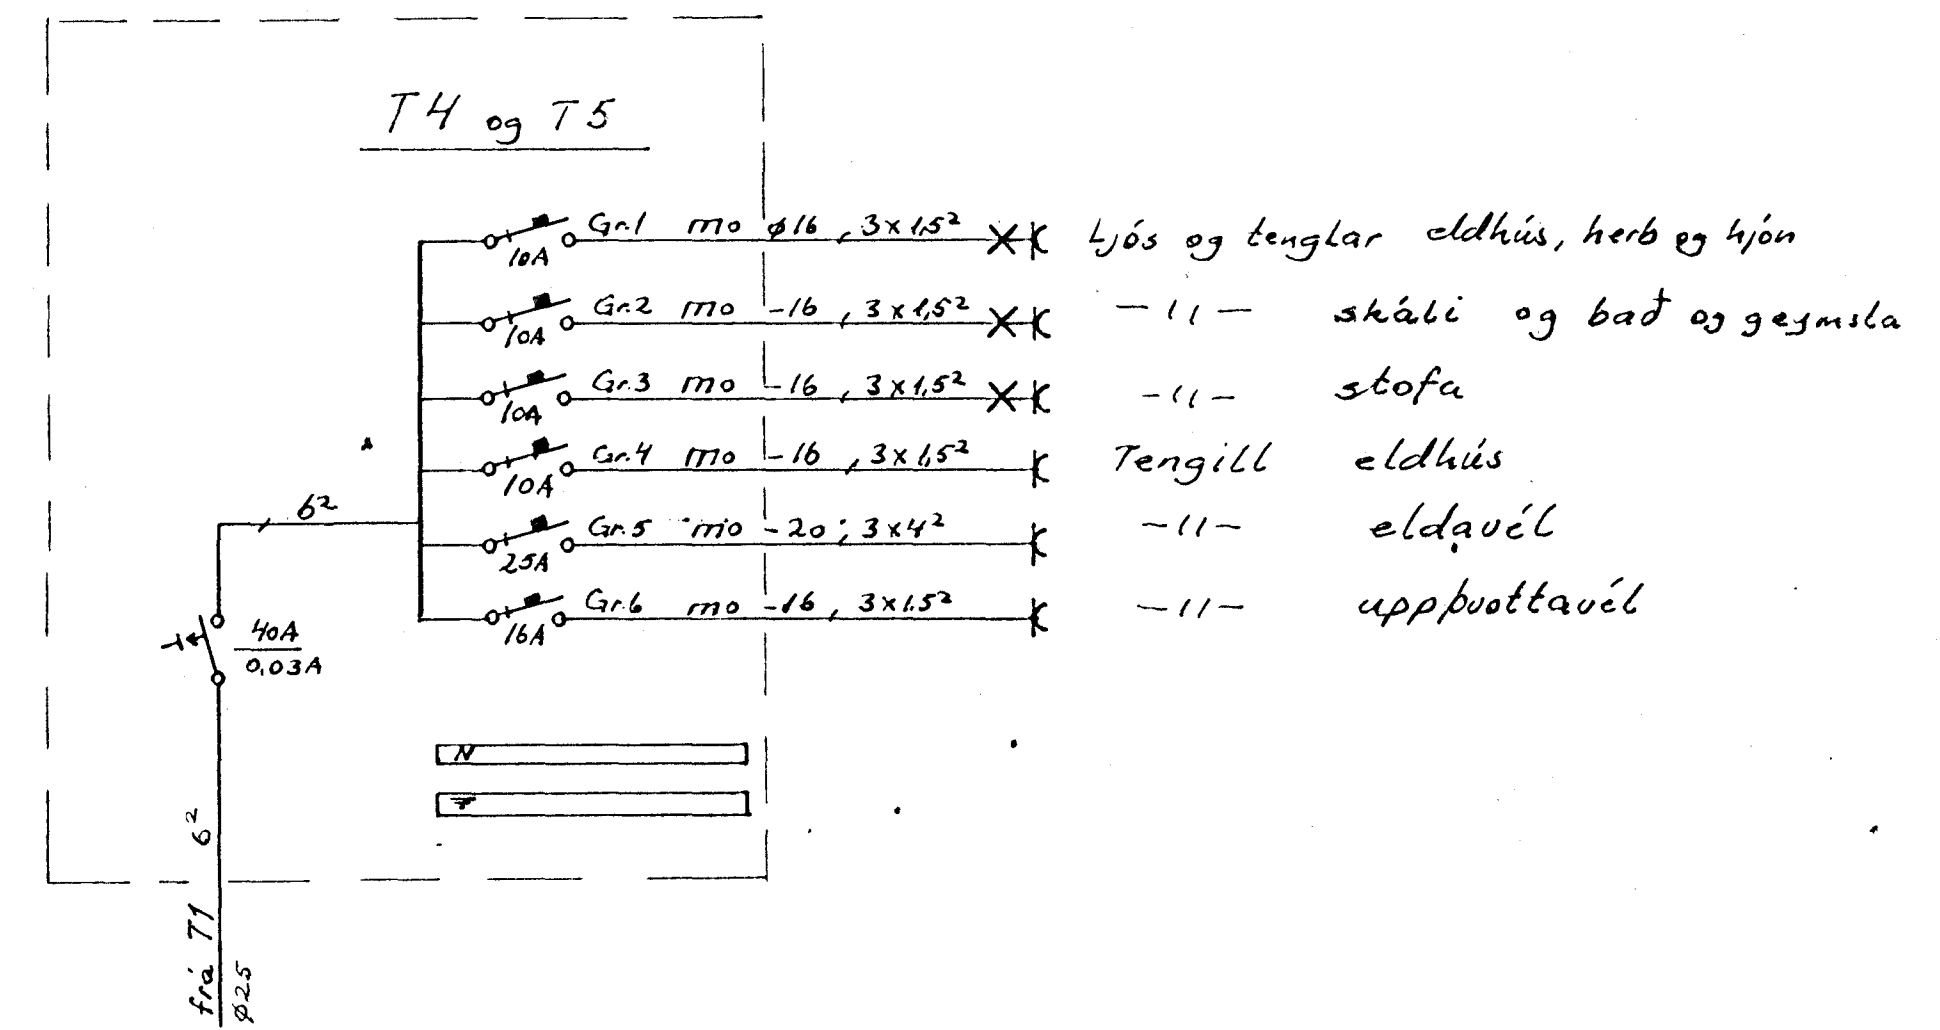 T4 og T5
Gr.1 mo ø16, 3x1,5² Ljós og tenglar eldhús, herb og hjón
10A
Gr.2 mo -16, 3x1,5² -〃- skáli og bað og geymsla
10A
Gr.3 mo -16, 3x1,5² -〃- stofa
10A
Gr.4 mo -16, 3x1,5² Tengill eldhús
10A
6²
Gr.5 mo -20, 3x4² -〃- eldavél
25A
Gr.6 mo -16, 3x1.5² -〃- uppþvottavél
16A
40A
0,03A
N
6²
frá T1
ø25